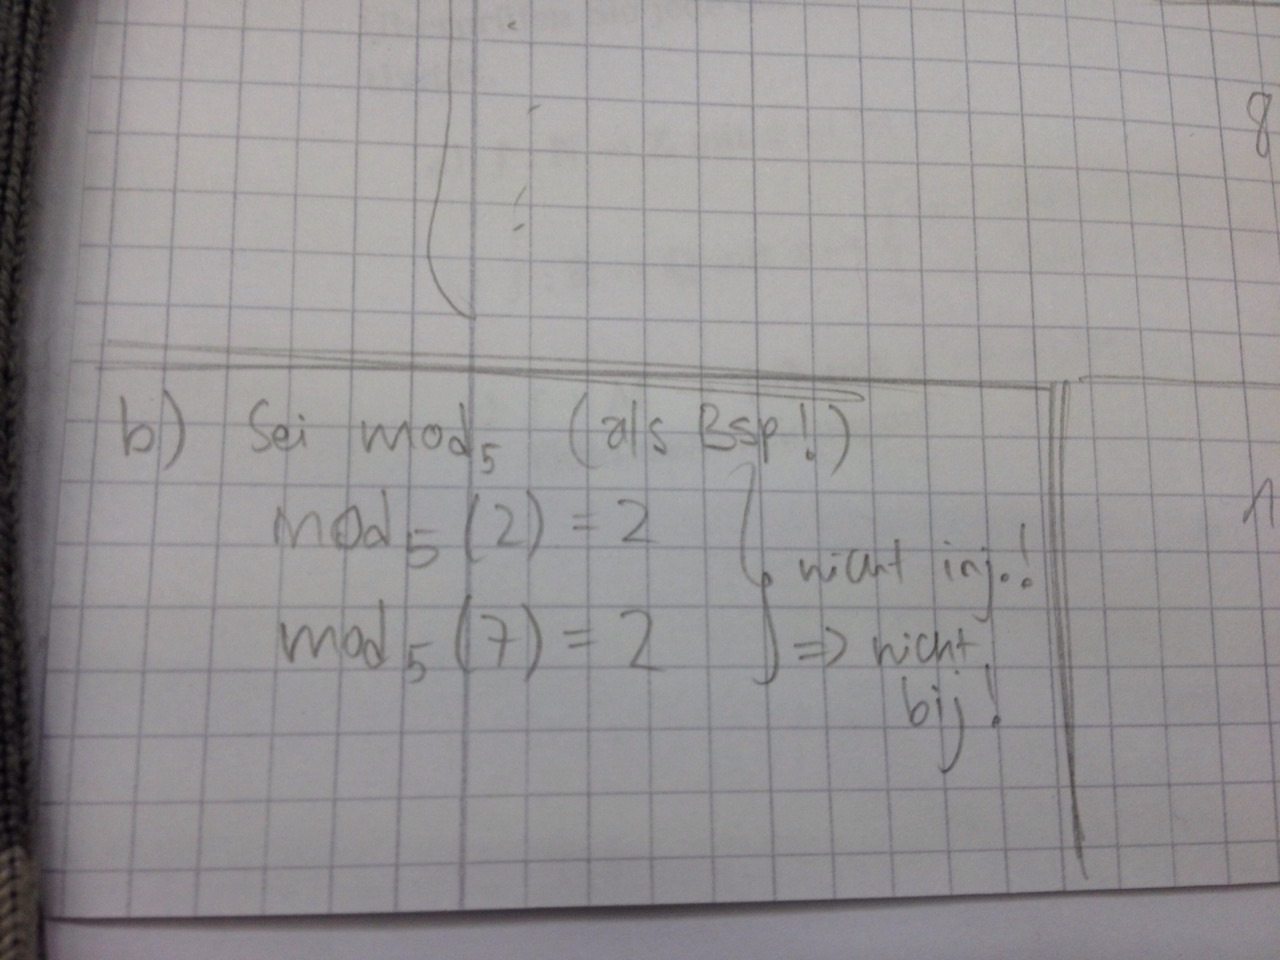 8
b) Sei mod₅ (als Bsp!)
mod₅(2) = 2
nicht inj.!
mod₅(7) = 2
=> nicht
bij!
1